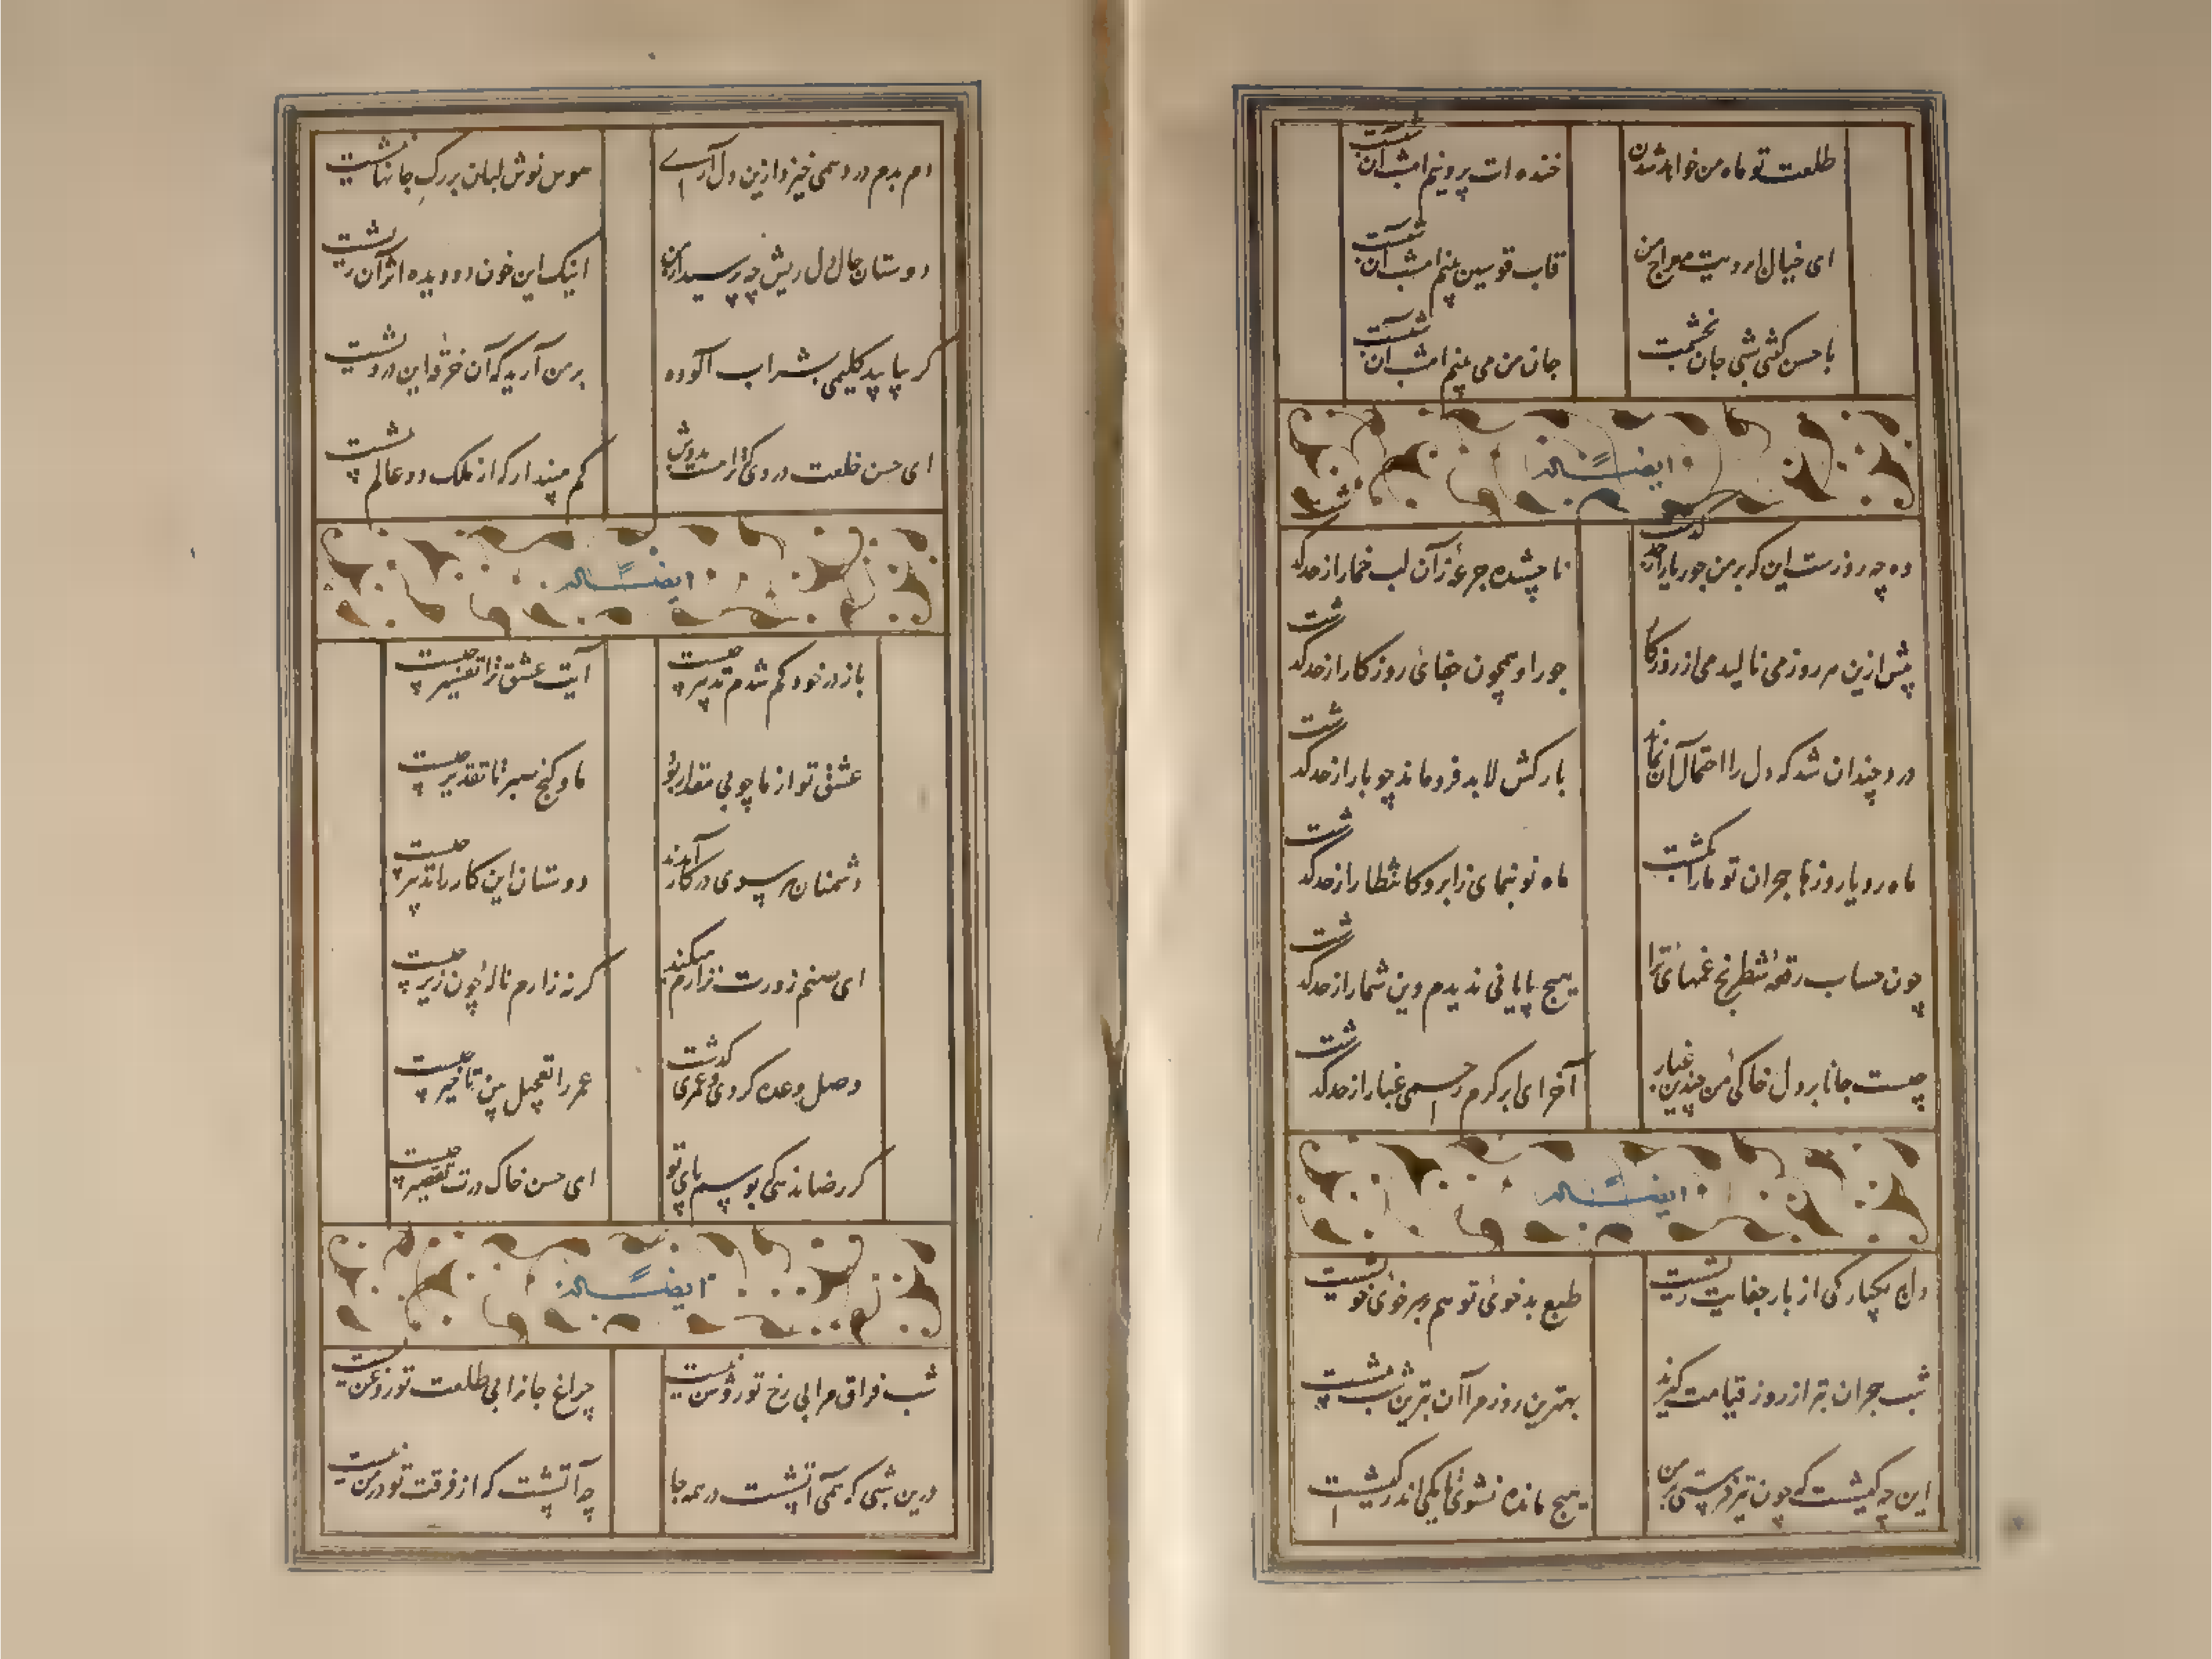 طلعت تو ماه من خواهد شدن
خنده ات پروینم امشب آن شبست
ای خیال ابرویت معراج من
قاب قوسین بینم امشب آن شبست
با حسن گفتی شبی جان بخشمت
جان من می بینم امشب آن شبست
ایضاً له
ده چه روزست این که بر من جور یار از حد گذشت
ناچشیده جرعهٔ زآن لب خمار از حد گذشت
پیش ازین هر روز می نالیدمی از روزگار
جور او همچون جفای روزگار از حد گذشت
درد چندان شد که دل را احتمال آن نماند
بارکش لابد فرو ماند چو بار از حد گذشت
ماه رویا روزها هجران تو ما را بکشت
ماه نو بنمای زابرو کانتظار از حد گذشت
چون حساب رقعهٔ شطرنج غمهای ترا
هیچ پایانی ندیدم وین شمار از حد گذشت
چیست جانا بر دل خاکی من چندین غبار
آخر ای ابر کرم رحمی غبار از حد گذشت
ایضاً له
دل بیکبارگی از بار جفایت ریشست
طبع بدخوی تو هم بر خوی خویشست
شب هجران بتر از روز قیامت گیرند
بهترین روز مرا آن بترین شب پیشست
این چه کیشست که چون تیر فرستی بر من
هیچ مانده نشوی تا یکی اندر کیشست
دم بدم درد همی خیزد ازین دل آرے
هوس نوش لبان بزرگ جانها نیشست
دوستان حال دل ریش چه پرسید از من
اینک این خون دو دیده اثر آن ریشست
گر بیابید گلیمی بشراب آلوده
بر من آرید که آن خرقهٔ این درویشست
ای حسن خلعت درویکی آراست بدوش
کم مپندار که از ملک دو عالم بیشست
ایضاً له
باز در خود گم شدم تدبیر چیست
آیت عشق ترا تفسیر چیست
عشق تو از ما چو بی مقدار بود
ما و گنج صبر تا تقدیر چیست
دشمنان هر سوی در کار آمدند
دوستان این کار را تدبیر چیست
ای صنم زورت نزارم میکند
گر نه زارم نالهٔ چون زیر چیست
وصل وعده کردی و عمری گذشت
عمر را تعجیل بین تاخیر چیست
گر رضا ندهی که بوسم پای تو
ای حسن خاک درت تقصیر چیست
ایضاً له
شب فراق مرا بی رخ تو روشن نیست
چراغ جانرا بی طلعت تو روغن نیست
درین شبی که همی آتشست در همه جا
چه آتشست که از فرقت تو در من نیست